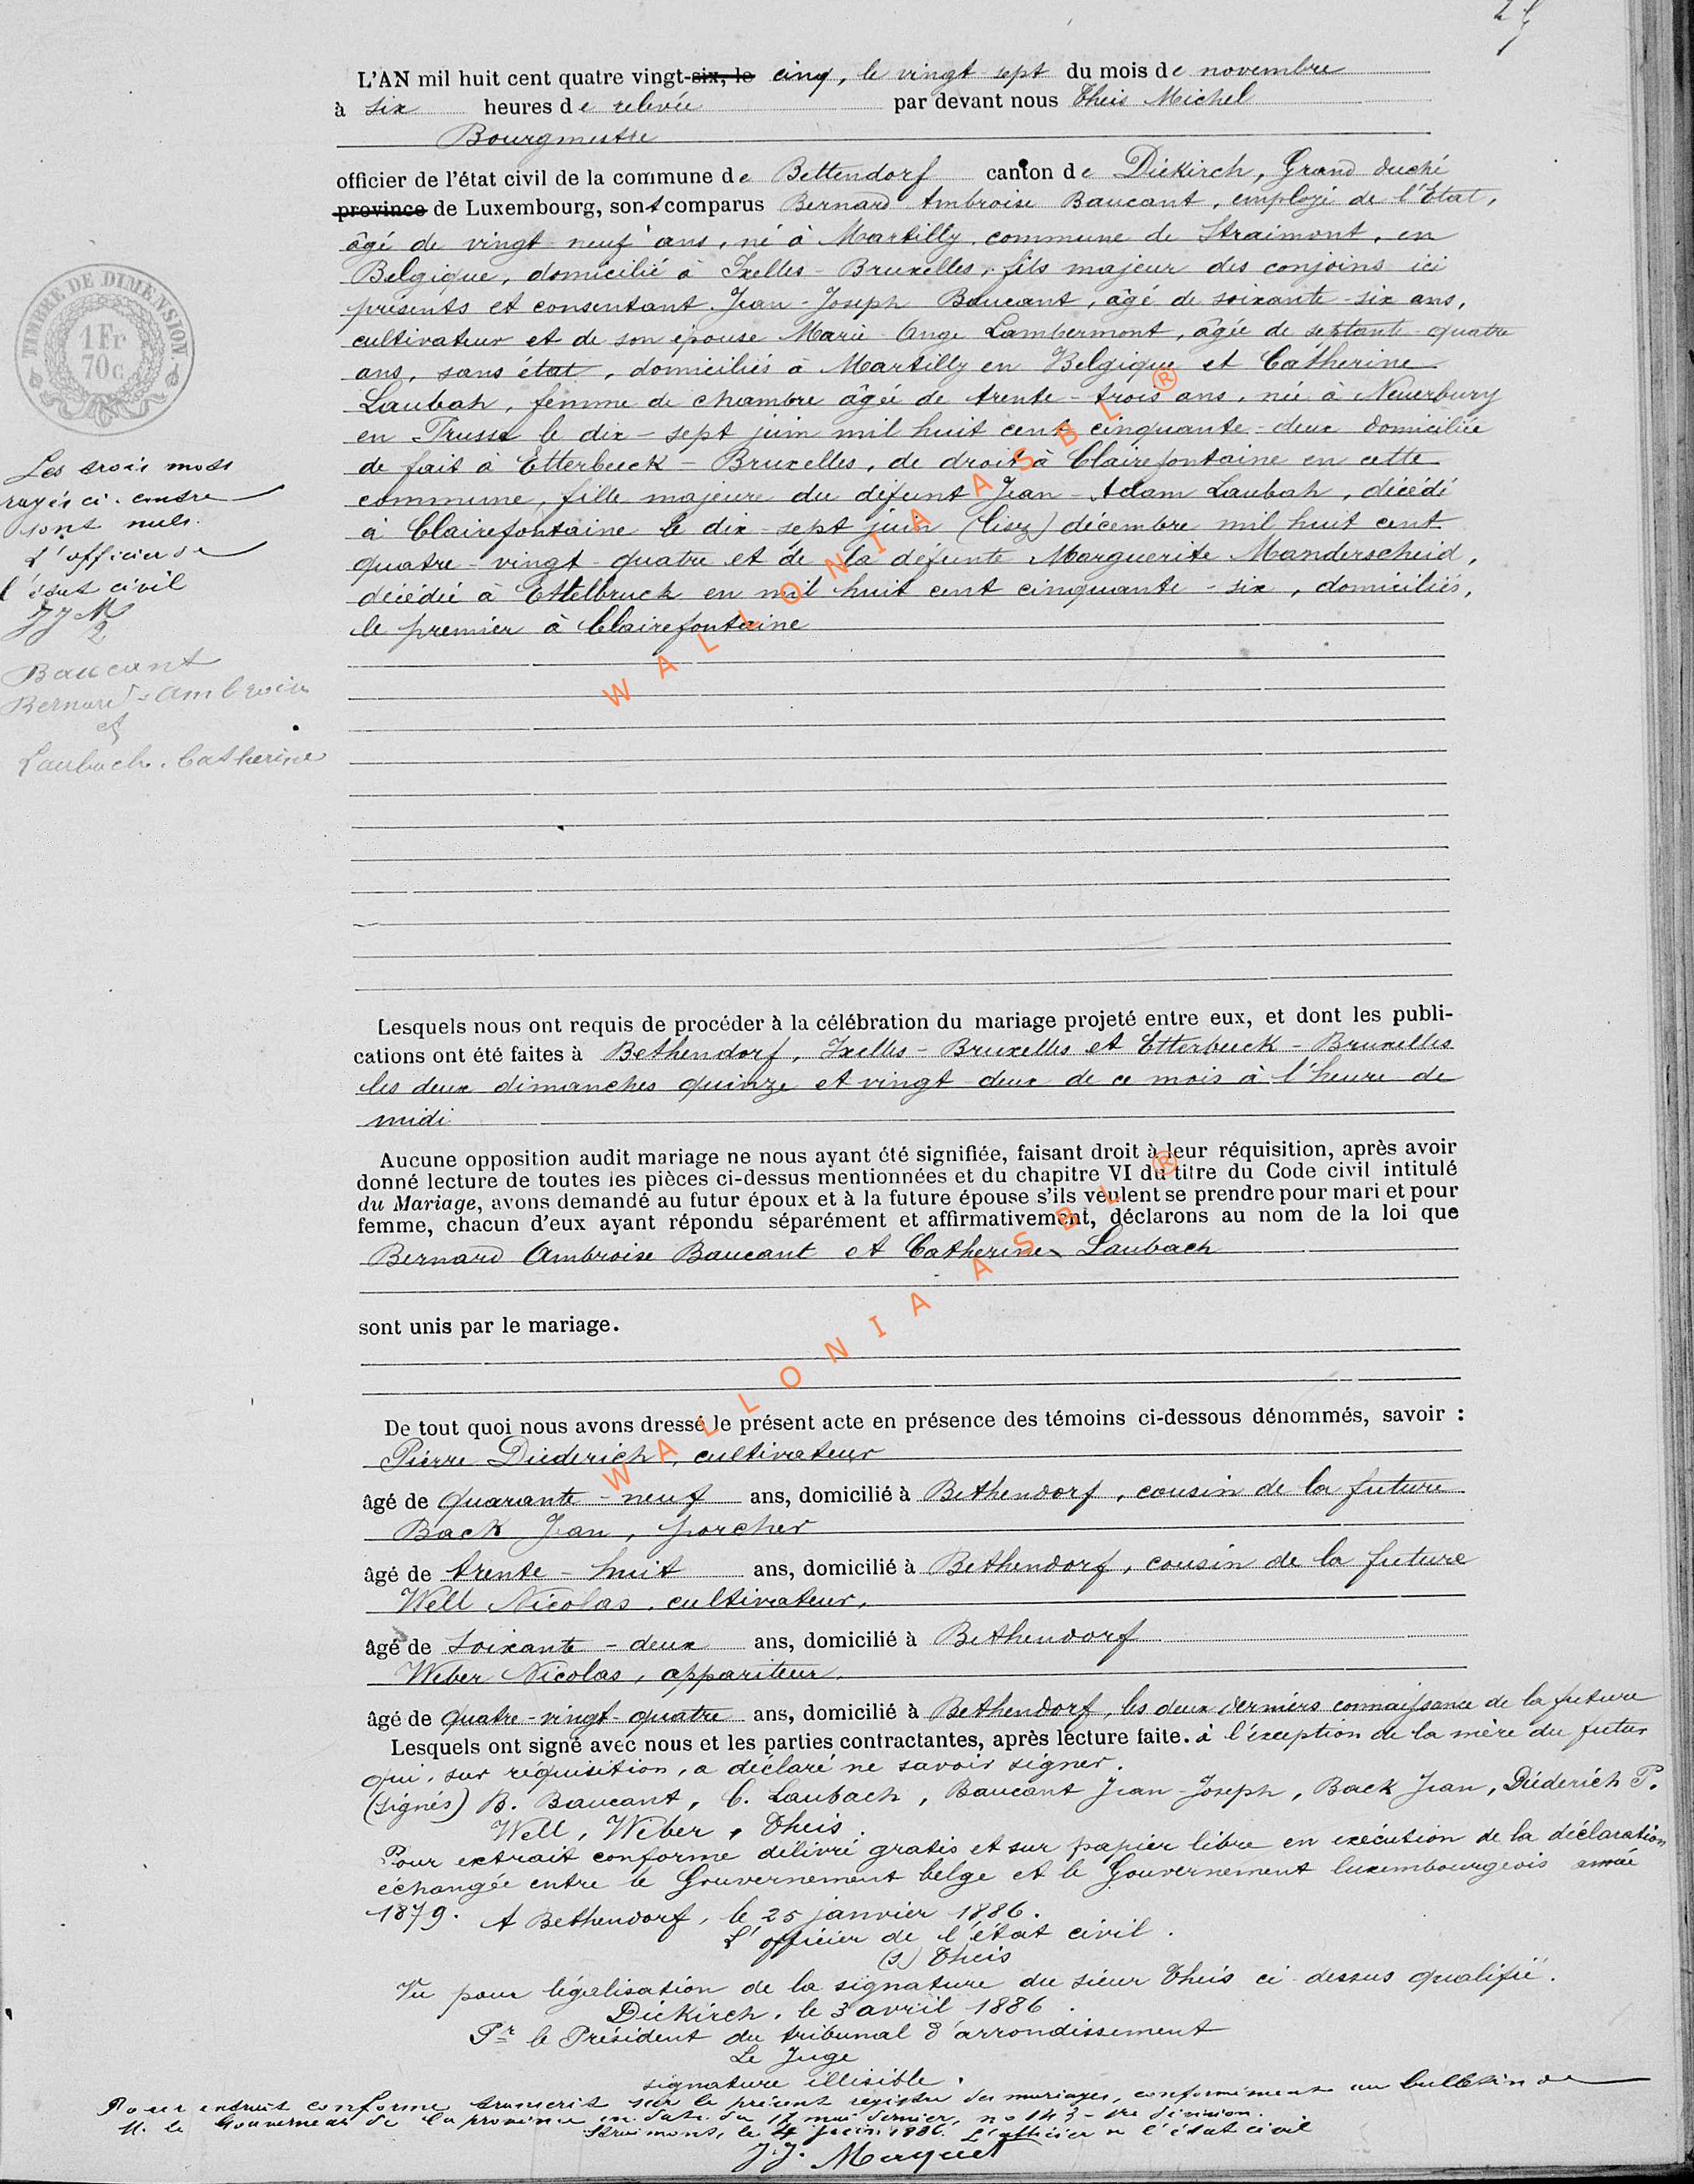 L'AN mil huit cent quatre vingt-six, le cinq, le vingt sept du mois de novembre
à six heures de relevée par devant nous Theis Michel
Bourgmestre
officier de l'état civil de la commune de Bettendorf canton de Diekirch, Grand duché
province de Luxembourg, sont comparus Bernard Ambroise Baucant, employé de l'Etat,
âgé de vingt neuf ans, né à Martilly commune de Straimont, en
Belgique, domicilié à Ixelles - Bruxelles, fils majeur des conjoins ici
présents et consentant Jean-Joseph Baucant, âgé de soixante-six ans,
cultivateur et de son épouse Marie Ange Lambermont, âgée de septante-quatre
ans, sans état, domiciliés à Martilly en Belgique et Catherine
Laubah, femme de chambre âgée de trente-trois ans, née à Neuerburg
en Prusse le dix-sept juin mil huit cent cinquante-deux domiciliée
de fait à Etterbeeck - Bruxelles, de droit à Clairefontaine en cette
commune, fille majeure du défunt Jean-Adam Laubah, décédé
à Clairefontaine le dix-sept juin (lisez) décembre mil huit cent
quatre-vingt-quatre et de la défunte Marguerite Manderscheid,
décédée à Ettelbruck en mil huit cent cinquante-six, domiciliés,
le premier à Clairefontaine
TIMBRE DE DIMENSION.
1 Fr
70 c.
Les trois mots
rayés ci-contre
sont nuls.
L'officier de
l'état civil
JJM
Baucant
Bernard-Ambroise
et
Laubach. Catherine
Lesquels nous ont requis de procéder à la célébration du mariage projeté entre eux, et dont les publi-
cations ont été faites à Bethendorf, Ixelles - Bruxelles et Etterbeeck - Bruxelles
les deux dimanches quinze et vingt deux de ce mois à l'heure de
midi
Aucune opposition audit mariage ne nous ayant été signifiée, faisant droit à leur réquisition, après avoir
donné lecture de toutes les pièces ci-dessus mentionnées et du chapitre VI du titre du Code civil intitulé
du Mariage, avons demandé au futur époux et à la future épouse s'ils veulent se prendre pour mari et pour
femme, chacun d'eux ayant répondu séparément et affirmativement, déclarons au nom de la loi que
Bernard Ambroise Baucant et Catherine Laubach
sont unis par le mariage.
De tout quoi nous avons dressé le présent acte en présence des témoins ci-dessous dénommés, savoir :
Pierre Diederich, cultivateur
âgé de quarante-neuf ans, domicilié à Bethendorf, cousin de la future
Back Jean, porcher
âgé de trente-huit ans, domicilié à Bethendorf, cousin de la future
Well Nicolas, cultivateur,
âgé de soixante-deux ans, domicilié à Bethendorf
Weber Nicolas, appariteur.
âgé de quatre-vingt-quatre ans, domicilié à Bethendorf, les deux derniers connaissance de la future
Lesquels ont signé avec nous et les parties contractantes, après lecture faite. à l'exception de la mère du futur
qui, sur réquisition, a déclaré ne savoir signer.
(signés) B. Baucant, C. Laubach, Baucant Jean-Joseph, Back Jean, Diederich P.
Well, Weber, Theis.
Pour extrait conforme délivré gratis et sur papier libre en exécution de la déclaration
échangée entre le Gouvernement belge et le Gouvernement luxembourgeois année
1879. A Bethendorf, le 25 janvier 1886.
L'officier de l'état civil.
(s) Theis
Vu pour légalisation de la signature du sieur Theis ci-dessus qualifié.
Diekirch, le 3 avril 1886.
Pr le Président du tribunal d'arrondissement
Le Juge
signature illisible.
Pour extrait conforme transcrit sur le présent registre des mariages, conformément au bulletin de
M. le Gouverneur de la province en date du 11 mai dernier, no 143 - 1re division.
Straimont, le 4 juin 1886. L'officier de l'état civil
J.J. Maquet
WALLONIA ASBL ®
WALLONIA ASBL ®